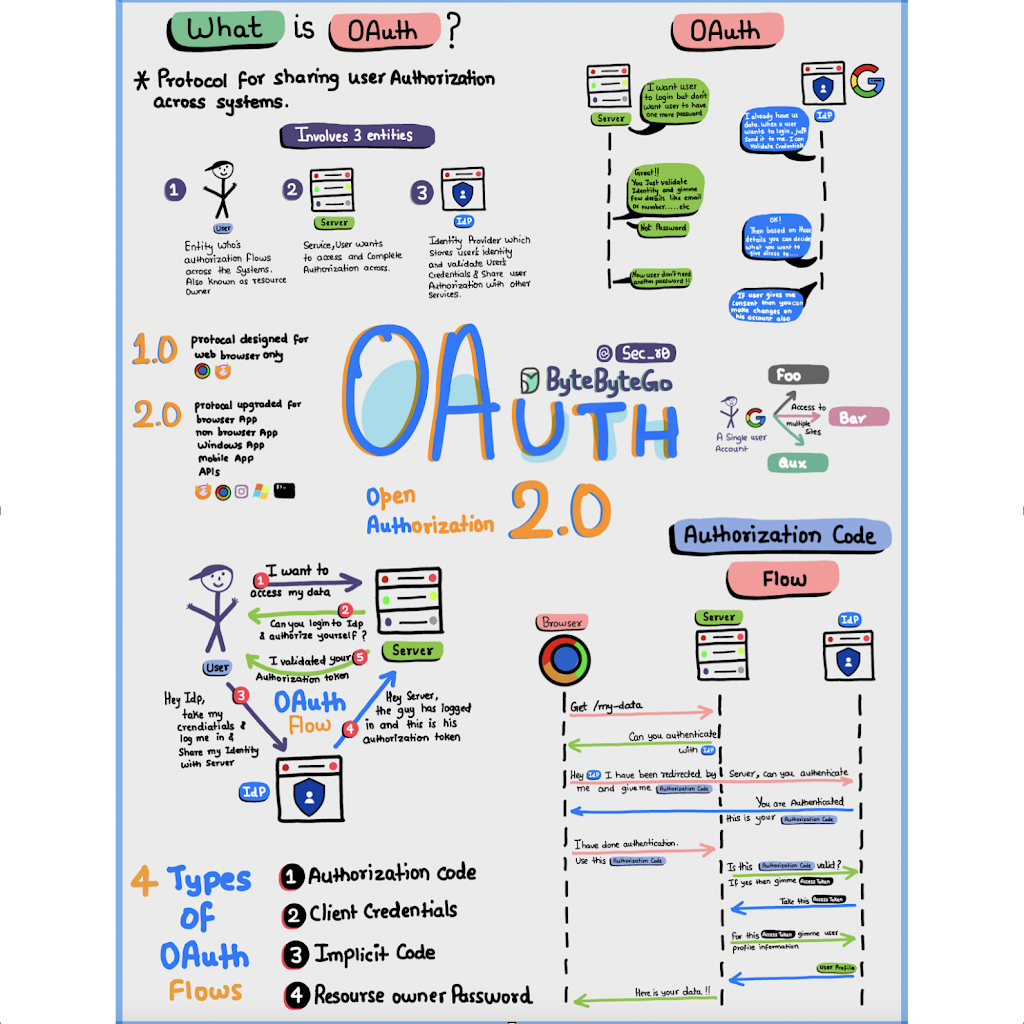 What is OAuth ?
* Protocol for sharing user Authorization
across systems.
Involves 3 entities
1
User
Entity Who's
authorization Flows
across the Systems.
Also Known as resource
Owner
2
Server
Service, User wants
to access and Complete
Authorization across.
3
IdP
Identity Provider which
Stores user's Identity
and validate User's
Credentials & Share user
Authorization with other
Services.
OAuth
Server
I want user
to login but don't
want user to have
one more password
IdP
I already have us
data. When a user
wants to login, just
Send it to me. I can
Validate Credentials
Great!!
You Just validate
Identity and gimme
few details like email
or number.....etc
Not Password
OK!
Then based on those
details you can decide
what you want to
give access to....
Now user don't need
another password !!
If user gives me
consent then you can
make changes on
his account also
1.0
protocal designed for
web browser only
2.0
protocal upgraded for
browser App
non browser App
Windows App
mobile App
APIs
OAUTH
@ Sec_r0
ByteByteGo
Open
Authorization
2.0
A Single user
Account
Access to
multiple
Sites
Foo
Bar
Qux
User
1
I want to
access my data
2
Can you login to Idp
& authorize yourself ?
5
I validated your
Authorization token
Server
OAuth
Flow
3
Hey Idp,
take my
crendiatials &
log me in &
Share my Identity
with Server
4
Hey Server,
the guy has logged
in and this is his
authorization token
IdP
4 Types
of
OAuth
Flows
1 Authorization code
2 Client Credentials
3 Implicit Code
4 Resourse owner Password
Authorization Code
Flow
Browser
Server
IdP
Get /my-data
Can you authenticate
with IdP
Hey IdP I have been redirected by Server, can you authenticate
me and give me Authorization Code
You are Authenticated
this is your Authorization Code
I have done authentication.
Use this Authorization Code
Is this Authorization Code valid?
If yes then gimme Access Token
Take this Access Token
For this Access Token gimme user
profile information
User Profile
Here is your data !!